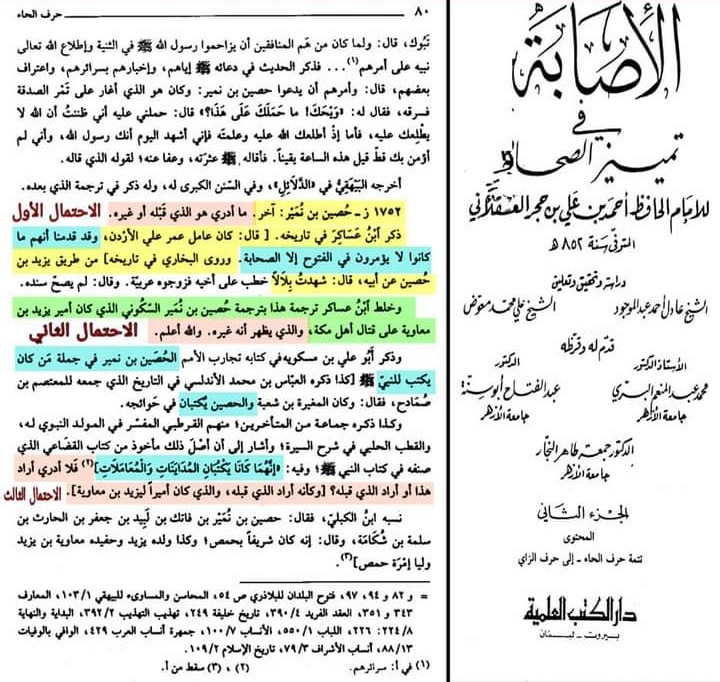 ٨٠ حرف الحاء
تَبُوك، قال: ولما كان من هَم المنافقين أن يزاحموا رسول الله ﷺ في الثنية وإطلاع الله تعالى
نبيه على أمرهم(١)... فذكر الحديث في دعائه ﷺ إياهم، وإخبارهم بسرائرهم، واعتراف
بعضهم، قال: وأمرهم أن يدعوا حصين بن نمير: وكان هو الذي أغار على تَمْر الصدقة
فسرقه، فقال له: «وَيْحَكَ! ما حَمَلَكَ عَلَى هَذَا؟» قال: حملني عليه أني ظننتُ أن الله لا
يطْلِعك عليه، فأما إذْ أطلعك الله عليه وعلمتَه فإني أشهد اليوم أنك رسول الله، وأني لم
أؤمن بك قط قبل هذه الساعة يقيناً. فأقاله ﷺ عثرته، وعفا عنه؛ لقوله الذي قاله.
أخرجه البَيْهَقِيُّ في «الدَّلَائِلِ»، وفي السنن الكبرى له، وله ذكر في ترجمة الذي بعده.
١٧٥٢ ز ـ حُصين بن نُمَيْر: آخر. ما أدري هو الذي قَبْله أو غيره. الاحتمال الأول
ذكر ابْنُ عَسَاكِرَ في تاريخه. [ قال: كان عامل عمر علي الأردن، وقد قدمنا أنهم ما
كانوا لا يؤمرون في الفتوح إلا الصحابة. وروى البخاري في تاريخه] من طريق يزيد بن
حُصين عن أبيه، قال: شهدتُ بِلَالاً خطب على أخيه فزوجوه عربيّة. وقال: لم يصحّ سنده.
وخلط ابْنُ عساكر ترجمة هذا بترجمة حُصين بن نُمَيْر السكُوني الذي كان أمير يزيد بن
معاوية على قتال أهل مكة، والذي يظهر أنه غيره. والله أعلم. الاحتمال الثاني
وذكر أَبُو علي بن مسكويه في كتابه تجارب الأمم الحُصَين بن نمير في جملة مَن كان
يكتب للنبيّ ﷺ [كذا ذكره العبّاس بن محمد الأندلسي في التاريخ الذي جمعه للمعتصم بن
صُمَادح، فقال: وكان المغيرة بن شعبة والحصين يُكتبان في حوائجه.
وكذا ذكره جماعة من المتأخرين؛ منهم القرطبي المفسّر في المولد النبوي له،
والقطب الحلبي في شرح السيرة؛ وأشار إلى أن أصْلَ ذلك مأخوذ من كتاب القضاعي الذي
صنفه في كتاب النبي ﷺ؛ وفيه: «إِنَّهُمَا كَانَا يَكْتُبَانِ المُدَايَنَاتِ وَالْمُعَامَلَاتِ](٢) فلا أدري أراد
هذا أو أراد الذي قبله؟ [وكأنه أراد الذي قبله، والذي كان أميراً ليزيد بن معاوية]. الاحتمال الثالث
نسبه ابنُ الكَبليّ، فقال: حصين بن نُمَيْر بن فاتك بن لَبِيد بن جعفر بن الحارث بن
سلمة بن شُكَامَة، وقال: إنه كان شريفاً بحمص؛ وكذا ولده يزيد وحفيده معاوية بن يزيد
وليا إمْرَة حمص](٣).
= و ٨٢ و ٩٤، ٩٧، فتوح البلدان للبلاذري ص ٥٤، المحاسن والمساوىء للبيهقي ١٠٣/١، المعارف
٣٤٣ و ٣٥١، العقد الفريد ٣٩٠/٤، تاريخ خليفة ٢٤٩، تهذيب التهذيب ٣٩٢/٢، البداية والنهاية
٢٢٤/٨: ٢٢٦، اللباب ٥٥٠/١، الأنساب ١٠٠/٧، جمهرة أنساب العرب ٤٢٩، الوافي بالوفيات
٨٨/١٣، أنساب الأشراف ٧٩/٣، تاريخ الإسلام ١٠٩/٢.
(١) في أ: سرائرهم. (٢) ، (٣) سقط من أ.
الإصابة
في
تمييز الصحابة
للإمام الحافظ أحمد بن علي بن حجر العسقلاني
المتوفى سنة ٨٥٢ هـ
دراسة وتحقيق وتعليق
الشيخ عادل أحمد عبد الموجود الشيخ علي محمد معوض
قدم له وقرظه
الأستاذ الدكتور الدكتور
محمد عبد المنعم البري عبد الفتاح أبو سنة
جامعة الأزهر جامعة الأزهر
الدكتور جمعة طاهر النجار
جامعة الأزهر
الجزء الثاني
المحتوى
تتمة حرف الحاء - إلى حرف الزاي
دار الكتب العلمية
بيروت - لبنان